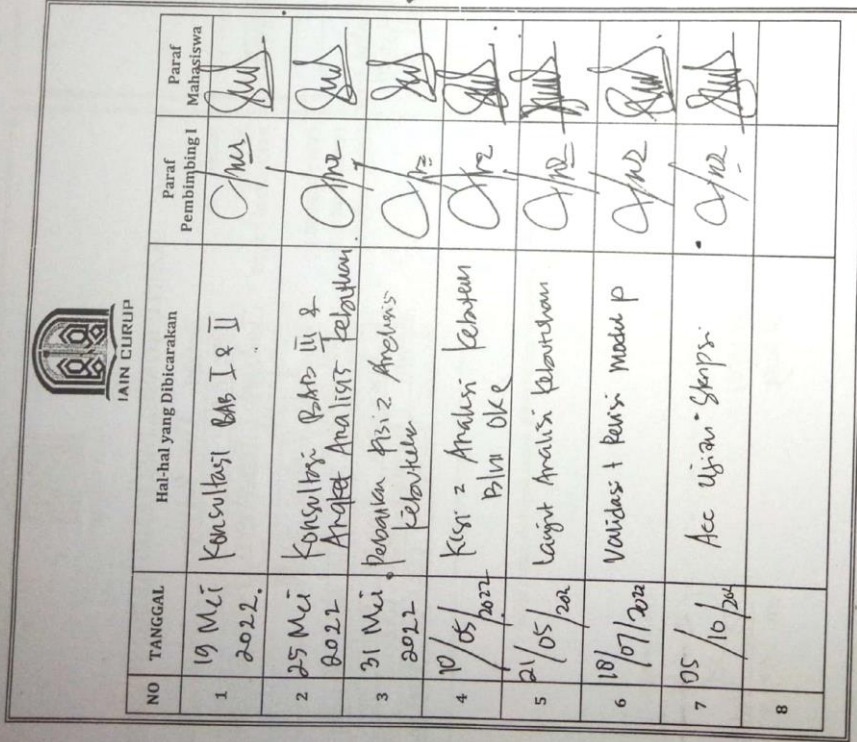 IAIN CURUP
NO TANGGAL Hal-hal yang Dibicarakan Paraf Pembimbing I Paraf Mahasiswa
1 19 Mei 2022. Konsultasi BAB I & II
2 25 Mei 2022 Konsultasi BAB III &
Angket Analisis kebutuhan.
3 31 Mei 2022 Perbaikan kisi2 Analisis
kebutuhan
4 10/05/2022 Kisi2 Analisi kebutuhan
Blm Oke
5 21/05/202 Lanjut Analisi kebutuhan
6 18/07/2022 Validasi + Revisi Modul p
7 05/10/202 Acc Ujian Skripsi
8